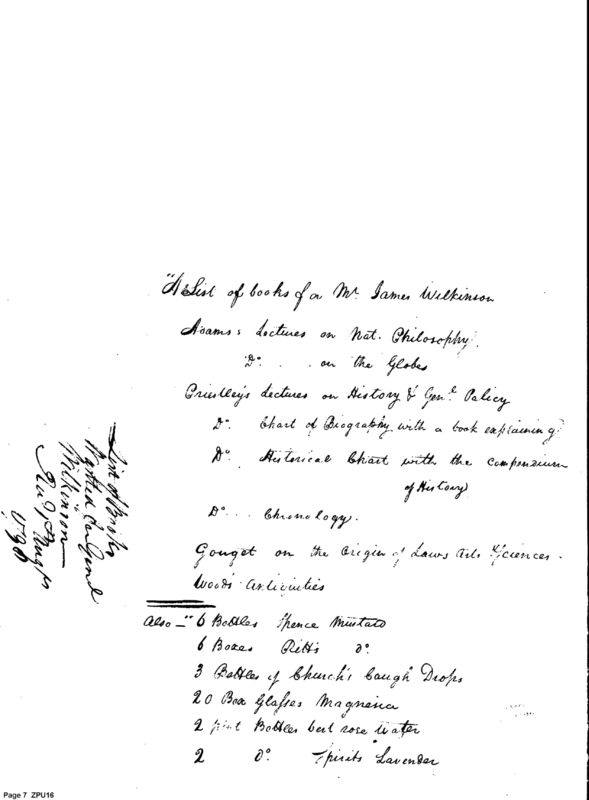 "A List of books for Mr. James Wilkinson
Adams's Lectures on Nat. Philosophy.
Do. . . on the Globes
Priestley's Lectures on History & Genl. Policy
Do. Chart of Biography with a book explaining
Do. Historical Chart with the compendium
of History
Do. . . Chronology.
Gouget on the Origin of Laws Arts Sciences.
Woods Antiquities
Also — " 6 Bottles Spence Mustard
6 Boxes Pitt's Do.
3 Bottles of Church's Cough Drops
20 Box Glasses Magnesia
2 pint Bottles best rose water
2 Do. Spirits Lavender
List of Books
Wanted for Genl
Wilkinson
Page 7 ZPU16